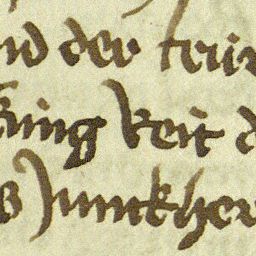 nd der trür
king keit d
s Junckher